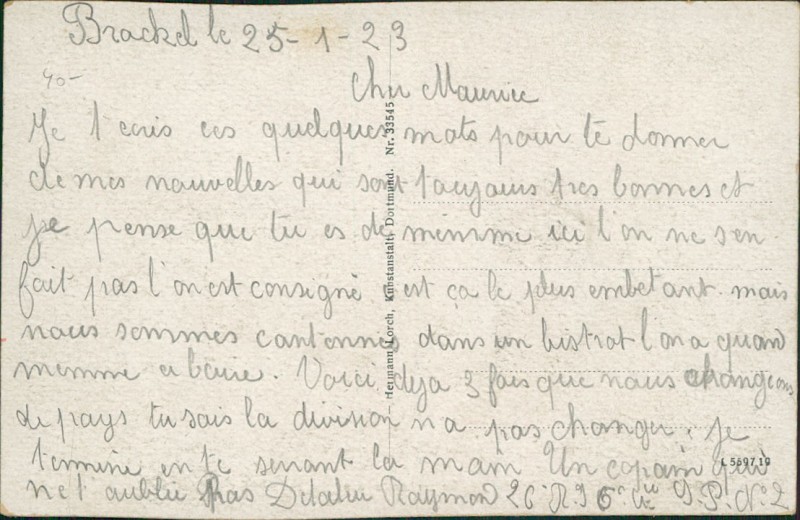 Brackel le 25-1-23
40-
Cher Maurice
Je t ecris ces quelques mots pour te donner
de mes nouvelles qui sont toujours tres bonnes et
je pense que tu es de mimme ici l'on ne s'en
fait pas l'on est consigné c'est ça le plus embetant. mais
nous sommes cantonnes dans un bistrot l'on a quand
mimme a boire. Voici deja 3 fois que nous changeons
de pays tu sais la division n a pas changer. je
termine en te serrant la main Un copain qui
ne t'oublie pas Raymond 26e R.I 6e Cie S.P. No 2
Hermann Lorch, Kunstanstalt, Dortmund. Nr. 33545
L 559719